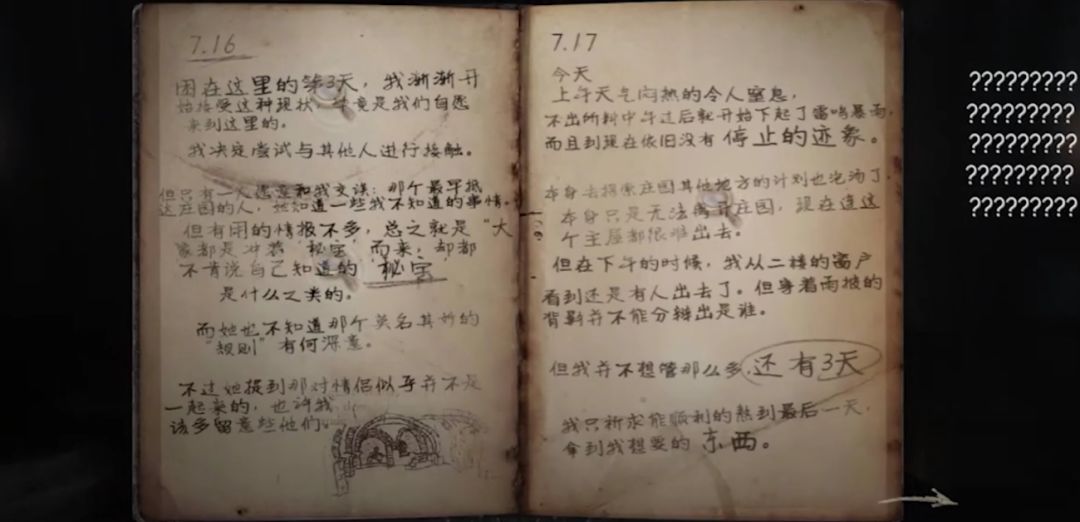 7.16
困在这里的第3天，我渐渐开
始接受这种现状，毕竟是我们自愿
来到这里的。
我决定尝试与其他人进行接触。
但只有一人愿意和我交谈：那个最早抵
达庄园的人，她知道一些我不知道的事情。
但有用的情报不多，总之就是“大
家都是冲着‘秘宝’而来，却都
不肯说自己知道的‘秘宝’
是什么之类的。
而她也不知道那个莫名其妙的
“规则”有何深意。
不过她提到那对情侣似乎并不是
一起来的，也许我
该多留意些他们
7.17
今天
上午天气闷热的令人窒息，
不出所料中午过后就开始下起了雷鸣暴雨，
而且到现在依旧没有停止的迹象。
本身去探索庄园其他地方的计划也泡汤了，
本身只是无法离开庄园，现在连这
个主屋都很难出去。
但在下午的时候，我从二楼的窗户
看到还是有人出去了。但穿着雨披的
背影并不能分辨出是谁。
但我并不想管那么多，还有3天
我只祈求能顺利的熬到最后一天，
拿到我想要的东西。
?????????
?????????
?????????
?????????
?????????